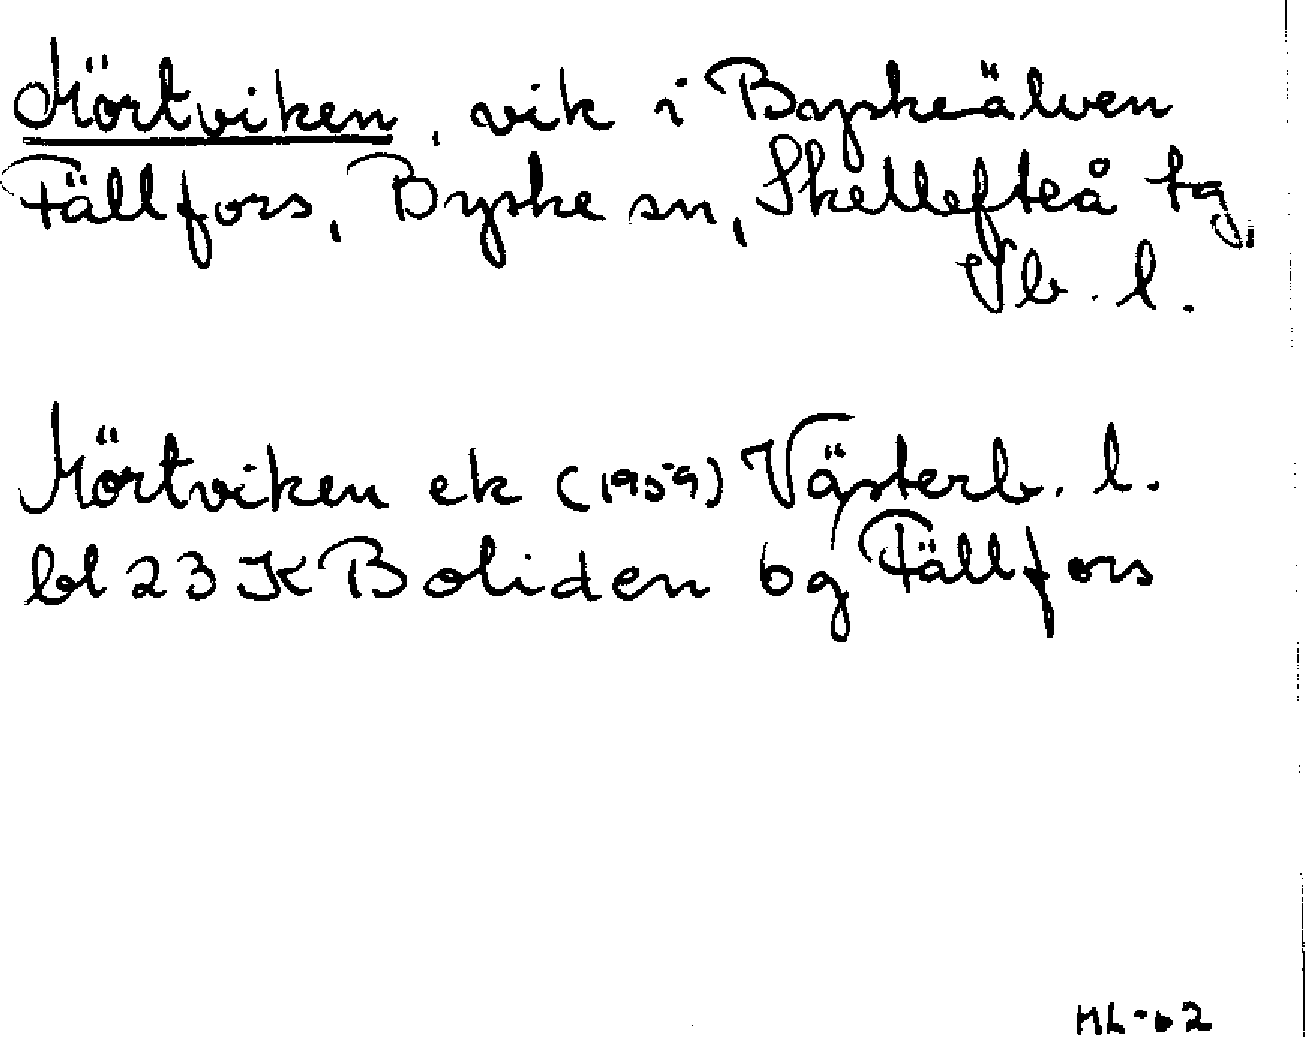 Mörtviken, vik i Byskeälven
Fällfors, Byske sn, Skellefteå tg,
Vb. l.
Mörtviken ek (1959) Västerb. l.
bl 23 K Boliden 6g Fällfors
ML-62